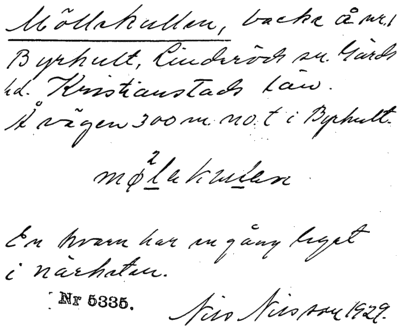 Möllekullen, backe å nr 1
Byrhult, Linderöds sn. Gärds
hd. Kristianstads län.
Å vägen 300 m no.t i Byrhult.
mø²lekulen
En kvarn har en gång legat
i närheten.
Nr 5335.
Nils Nilsson 1929.